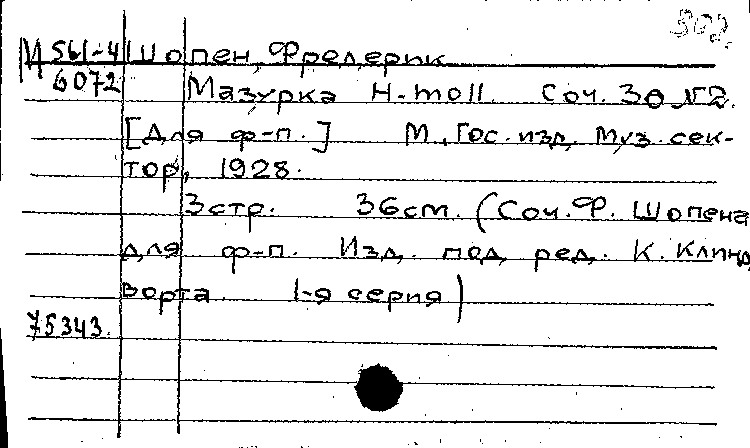 М 561-4 Шопен, Фредерик
6072 Мазурка H-moll. Соч. 30 №2.
[Для ф-п.] М., Гос. изд. Муз. сек-
тор, 1928.
3 стр. 36 см. (Соч. Ф. Шопена
для ф-п. Изд. под ред. К. Клинд
ворта. 1-я серия)
75343.